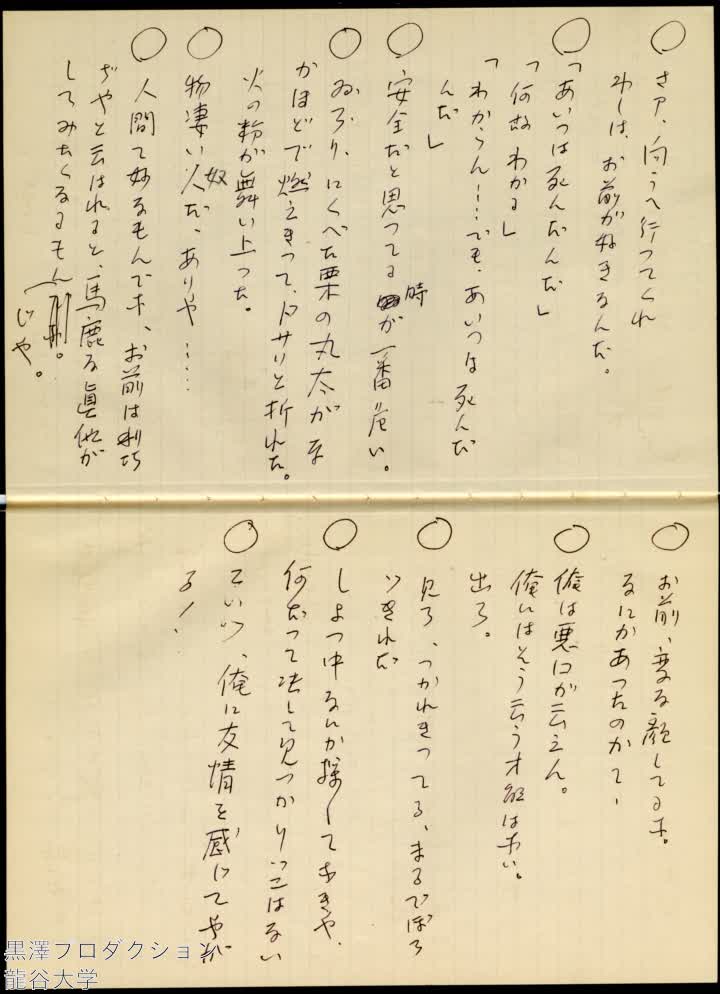 ○ さア、向うへ行ってくれ
わしは、お前がぬきるんだ。
○ 「あいつは死んだんだ」
「何故わかる」
「わからん……でも、あいつは死んだ
んだ」
○ 安全だと思つてる時が一番危い。
○ ゐろり、にくべた栗の丸太がな
かほどで燃えきって、ドサリと折れた。
火の粉が舞い上つた。
○ 物凄い奴だ、ありや……
○ 人間て妙なもんでネ、お前は
ぢやと云はれると、馬鹿な真似が
してみたくなるもんじや。
○ お前、変な顔してるネ。
なにかあつたのかて、
○ 俺は悪口が云えん。
俺にはそう云う才能はない。
出ろ。
○ 見ろ、つかれきつてる、まるでぼろ
ツきれだ
○ しよつ中なにか探しておきや、
何だつて決して見つかりつこはない
○ こいつ、俺に友情を感じてやが
る!
黒澤プロダクション
龍谷大学